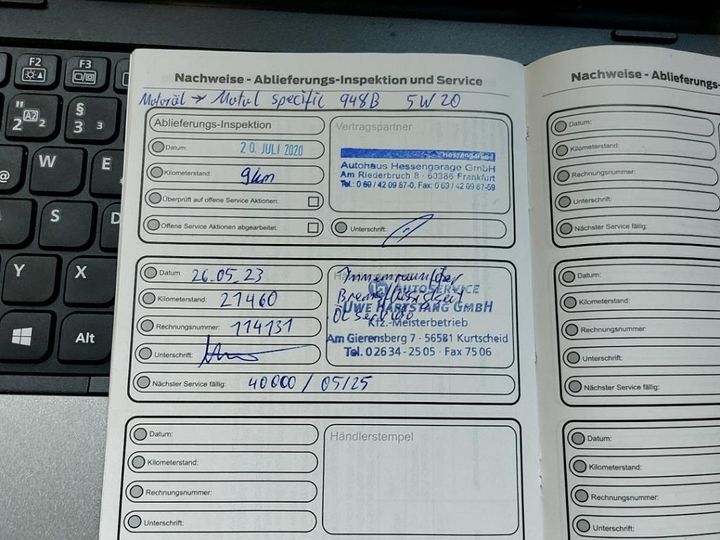 F2
F3
"
2
§
3
3
@
W
E
S
Y
X
Alt
Nachweise - Ablieferungs-Inspektion und Service
Motoröl → Motul specific 948B 5W20
Ablieferungs-Inspektion
Datum: 20. JULI 2020
Kilometerstand: 9km
Überprüft auf offene Service Aktionen:
Offene Service Aktionen abgearbeitet:
Vertragspartner
Hessengarage
Autohaus Hessengarage GmbH
Am Riederbruch 8 · 60386 Frankfurt
Tel.: 0 69 / 42 09 87-0, Fax: 0 69 / 42 09 87-59
Unterschrift:
Datum: 26.05.23
Kilometerstand: 21460
Rechnungsnummer: 114131
Unterschrift:
Innenraumfilter
AUTOSERVICE
Bremsflüssigkeit
UWE HARTSTANG GmbH
Kfz.-Meisterbetrieb
Am Gierensberg 7 · 56581 Kurtscheid
Tel. 0 26 34 - 25 05 · Fax 75 06
Nächster Service fällig: 40000 / 05/25
Datum:
Kilometerstand:
Rechnungsnummer:
Unterschrift:
Händlerstempel
Nachweise - Ablieferungs-
Datum:
Kilometerstand:
Rechnungsnummer:
Unterschrift:
Nächster Service fällig:
Datum:
Kilometerstand:
Rechnungsnummer:
Unterschrift:
Nächster Service fällig:
Datum:
Kilometerstand:
Rechnungsnummer:
Unterschrift: